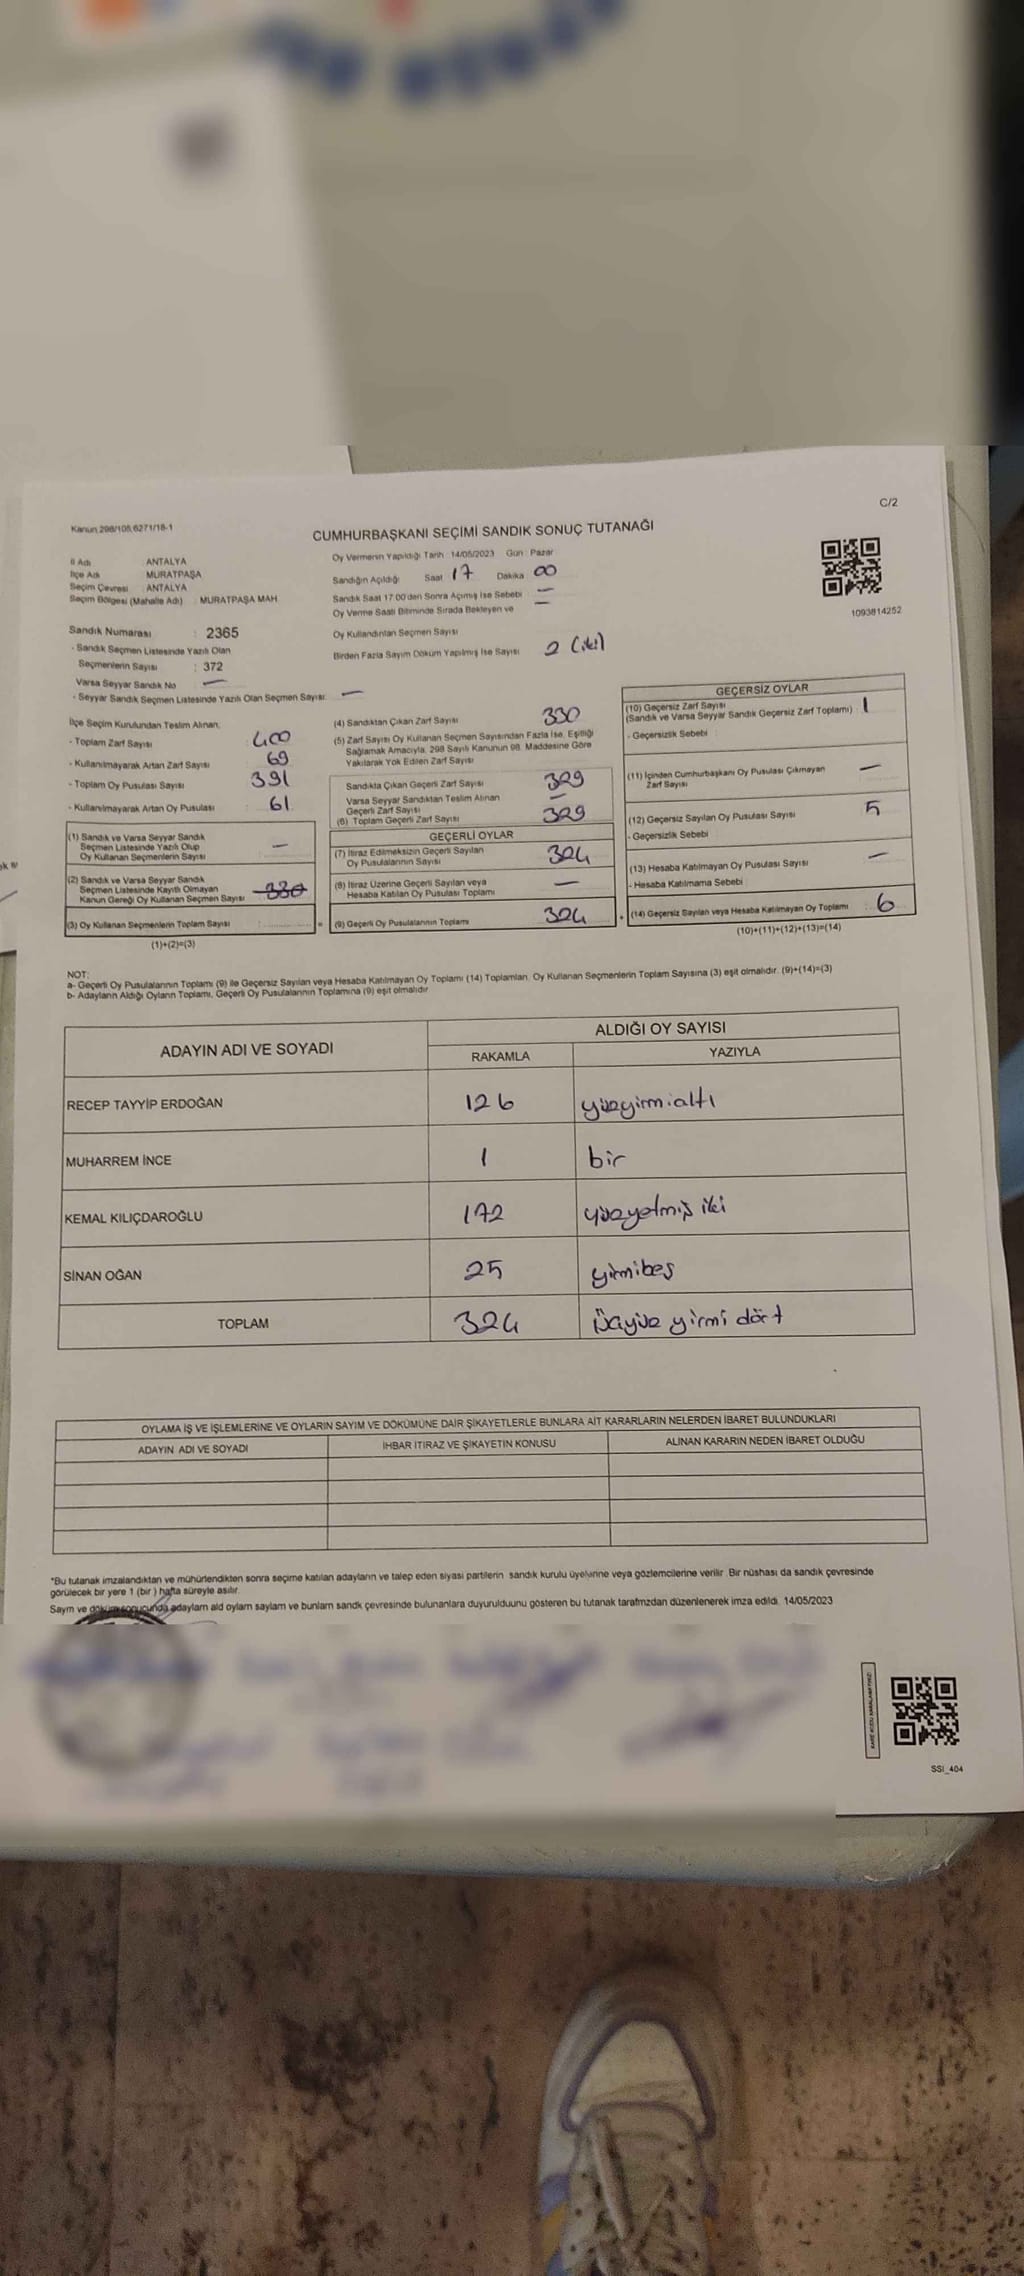 C/2
Kanun 298/105,6271/18-1
CUMHURBAŞKANI SEÇİMİ SANDIK SONUÇ TUTANAĞI
İl Adı ANTALYA
İlçe Adı MURATPAŞA
Seçim Çevresi : ANTALYA
Seçim Bölgesi (Mahalle Adı) : MURATPAŞA MAH.
Oy Vermenin Yapıldığı Tarih : 14/05/2023 Gün : Pazar
Sandığın Açıldığı Saat 17 Dakika 00
Sandık Saat 17:00'den Sonra Açımış İse Sebebi —
Oy Verme Saati Bitiminde Sırada Bekleyen ve —
Oy Kullandırılan Seçmen Sayısı
Birden Fazla Sayım Döküm Yapılmış İse Sayısı 2 (iki)
1093814252
Sandık Numarası : 2365
- Sandık Seçmen Listesinde Yazılı Olan
Seçmenlerin Sayısı : 372
Varsa Seyyar Sandık No —
- Seyyar Sandık Seçmen Listesinde Yazılı Olan Seçmen Sayısı: —
İlçe Seçim Kurulundan Teslim Alınan;
- Toplam Zarf Sayısı : 400
- Kullanılmayarak Artan Zarf Sayısı : 69
- Toplam Oy Pusulası Sayısı : 391
- Kullanılmayarak Artan Oy Pusulası : 61
(1) Sandık ve Varsa Seyyar Sandık
Seçmen Listesinde Yazılı Olup
Oy Kullanan Seçmenlerin Sayısı : —
(2) Sandık ve Varsa Seyyar Sandık
Seçmen Listesinde Kayıtlı Olmayan
Kanun Gereği Oy Kullanan Seçmen Sayısı 330
(3) Oy Kullanan Seçmenlerin Toplam Sayısı :
(1)+(2)=(3)
(4) Sandıktan Çıkan Zarf Sayısı 330
(5) Zarf Sayısı Oy Kullanan Seçmen Sayısından Fazla İse, Eşitliği
Sağlamak Amacıyla, 298 Sayılı Kanunun 98. Maddesine Göre
Yakılarak Yok Edilen Zarf Sayısı
Sandıkta Çıkan Geçerli Zarf Sayısı 329
Varsa Seyyar Sandıktan Teslim Alınan
Geçerli Zarf Sayısı —
(6) Toplam Geçerli Zarf Sayısı 329
GEÇERLİ OYLAR
(7) İtiraz Edilmeksizin Geçerli Sayılan
Oy Pusulalarının Sayısı 324
(8) İtiraz Üzerine Geçerli Sayılan veya
Hesaba Katılan Oy Pusulası Toplamı —
= (9) Geçerli Oy Pusulalarının Toplamı 324
GEÇERSİZ OYLAR
(10) Geçersiz Zarf Sayısı
(Sandık ve Varsa Seyyar Sandık Geçersiz Zarf Toplamı) : 1
- Geçersizlik Sebebi :
(11) İçinden Cumhurbaşkanı Oy Pusulası Çıkmayan
Zarf Sayısı —
(12) Geçersiz Sayılan Oy Pusulası Sayısı 5
- Geçersizlik Sebebi
(13) Hesaba Katılmayan Oy Pusulası Sayısı —
- Hesaba Katılmama Sebebi :
+ (14) Geçersiz Sayılan veya Hesaba Katılmayan Oy Toplamı : 6
(10)+(11)+(12)+(13)=(14)
NOT:
a- Geçerli Oy Pusulalarının Toplamı (9) ile Geçersiz Sayılan veya Hesaba Katılmayan Oy Toplamı (14) Toplamları, Oy Kullanan Seçmenlerin Toplam Sayısına (3) eşit olmalıdır. (9)+(14)=(3)
b- Adayların Aldığı Oyların Toplamı, Geçerli Oy Pusulalarının Toplamına (9) eşit olmalıdır
ADAYIN ADI VE SOYADI
ALDIĞI OY SAYISI
RAKAMLA YAZIYLA
RECEP TAYYİP ERDOĞAN 126 yüzyirmialtı
MUHARREM İNCE 1 bir
KEMAL KILIÇDAROĞLU 172 yüzyetmiş iki
SİNAN OĞAN 25 yirmibeş
TOPLAM 324 üçyüz yirmi dört
OYLAMA İŞ VE İŞLEMLERİNE VE OYLARIN SAYIM VE DÖKÜMÜNE DAİR ŞİKAYETLERLE BUNLARA AİT KARARLARIN NELERDEN İBARET BULUNDUKLARI
ADAYIN ADI VE SOYADI İHBAR İTİRAZ VE ŞİKAYETİN KONUSU ALINAN KARARIN NEDEN İBARET OLDUĞU
*Bu tutanak imzalandıktan ve mühürlendikten sonra seçime katılan adayların ve talep eden siyasi partilerin sandık kurulu üyelerine veya gözlemcilerine verilir. Bir nüshası da sandık çevresinde
görülecek bir yere 1 (bir ) hafta süreyle asılır.
Sayım ve döküm sonucunda adayların ald oyların saylam ve bunların sandk çevresinde bulunanlara duyurulduunu gösteren bu tutanak tarafmzdan düzenlenerek imza edildi. 14/05/2023
SSI_404